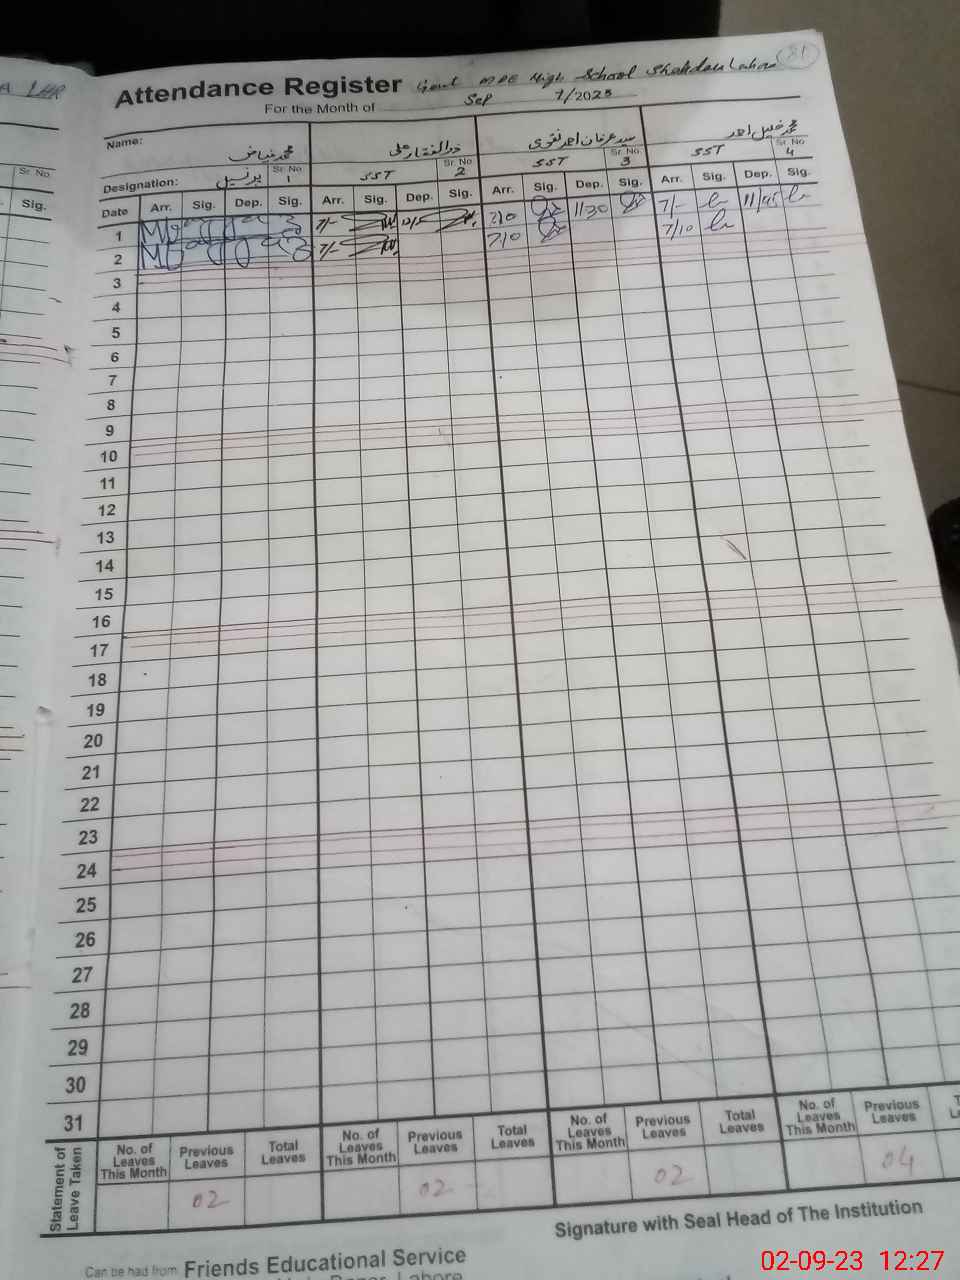 A LHR
Sr. No.
Sig.
81
Attendance Register Govt MDE High School Shahdau Lahore
For the Month of Sep 7/2025
Name: محمد فیاض ذوالفقار علی سید عرفان احمد نقوی محمد خلیل احمد
Designation: پرنسپل Sr. No. 1 SST Sr. No. 2 SST Sr. No. 3 SST Sr. No. 4
Date Arr. Sig. Dep. Sig. Arr. Sig. Dep. Sig. Arr. Sig. Dep. Sig. Arr. Sig. Dep. Sig.
1 7/- 7/0 1130 7/- 11/45
2 7/- 7/0 7/10
3
4
5
6
7
8
9
10
11
12
13
14
15
16
17
18
19
20
21
22
23
24
25
26
27
28
29
30
31
Statement of Leave Taken
No. of Leaves This Month Previous Leaves Total Leaves No. of Leaves This Month Previous Leaves Total Leaves No. of Leaves This Month Previous Leaves Total Leaves No. of Leaves This Month Previous Leaves
02 02 02 04
Signature with Seal Head of The Institution
Can be had from Friends Educational Service
Lahore
02-09-23 12:27